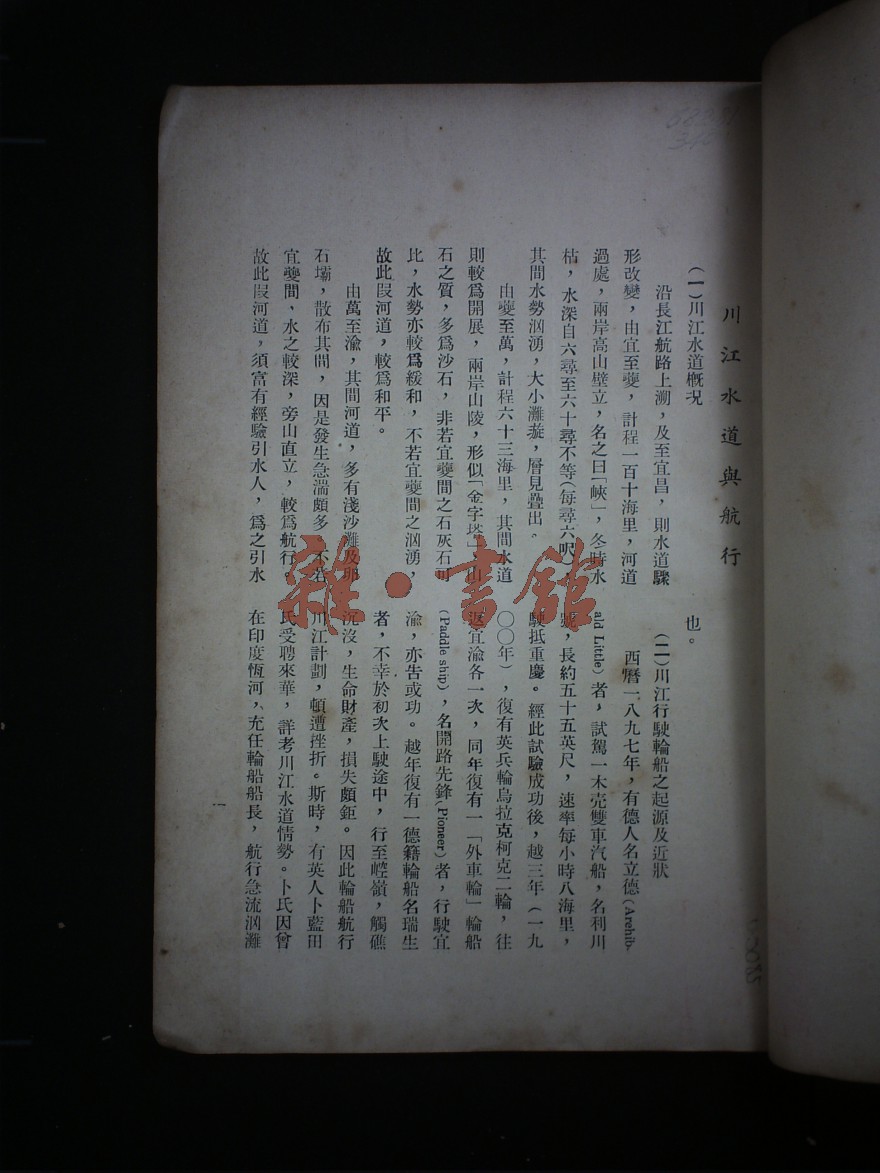 川江水道與航行
(一)川江水道槪况
沿長江航路上溯，及至宜昌，則水道驟
形改變，由宜至夔，計程一百十海里，河道
過處，兩岸高山壁立，名之曰「峽」，冬時水
枯，水深自六尋至六十尋不等(每尋六呎)
其間水勢汹湧，大小灘漩，層見疊出。
由夔至萬，計程六十三海里，其間水道
則較爲開展，兩岸山陵，形似「金字塔」山
石之質，多爲沙石，非若宜夔間之石灰石可
比，水勢亦較爲緩和，不若宜夔間之汹湧，
故此段河道，較爲和平。
由萬至渝，其間河道，多有淺沙灘及卵
石壩，散布其間，因是發生急湍頗多，不若
宜夔間、水之較深，旁山直立，較爲航行。
故此段河道，須富有經驗引水人，爲之引水
也。
(二)川江行駛輪船之起源及近狀
西曆一八九七年，有德人名立德(Arehib-
ald Little)者，試駕一木壳雙車汽船，名利川
號，長約五十五英尺，速率每小時八海里，
駛抵重慶。經此試驗成功後，越三年(一九
〇〇年)，復有英兵輪烏拉克柯克二輪，往
返宜渝各一次，同年復有一「外車輪」輪船
(Paddle ship)，名開路先鋒(Pioneer)者，行駛宜
渝，亦告成功。越年復有一德籍輪船名瑞生
者，不幸於初次上駛途中，行至崆嶺，觸礁
沉沒，生命財產，損失頗鉅。因此輪船航行
川江計劃，頓遭挫折。斯時，有英人卜藍田
氏受聘來華，詳考川江水道情勢。卜氏因曾
在印度恆河，充任輪船船長，航行急流汹灘
一
雜·書館